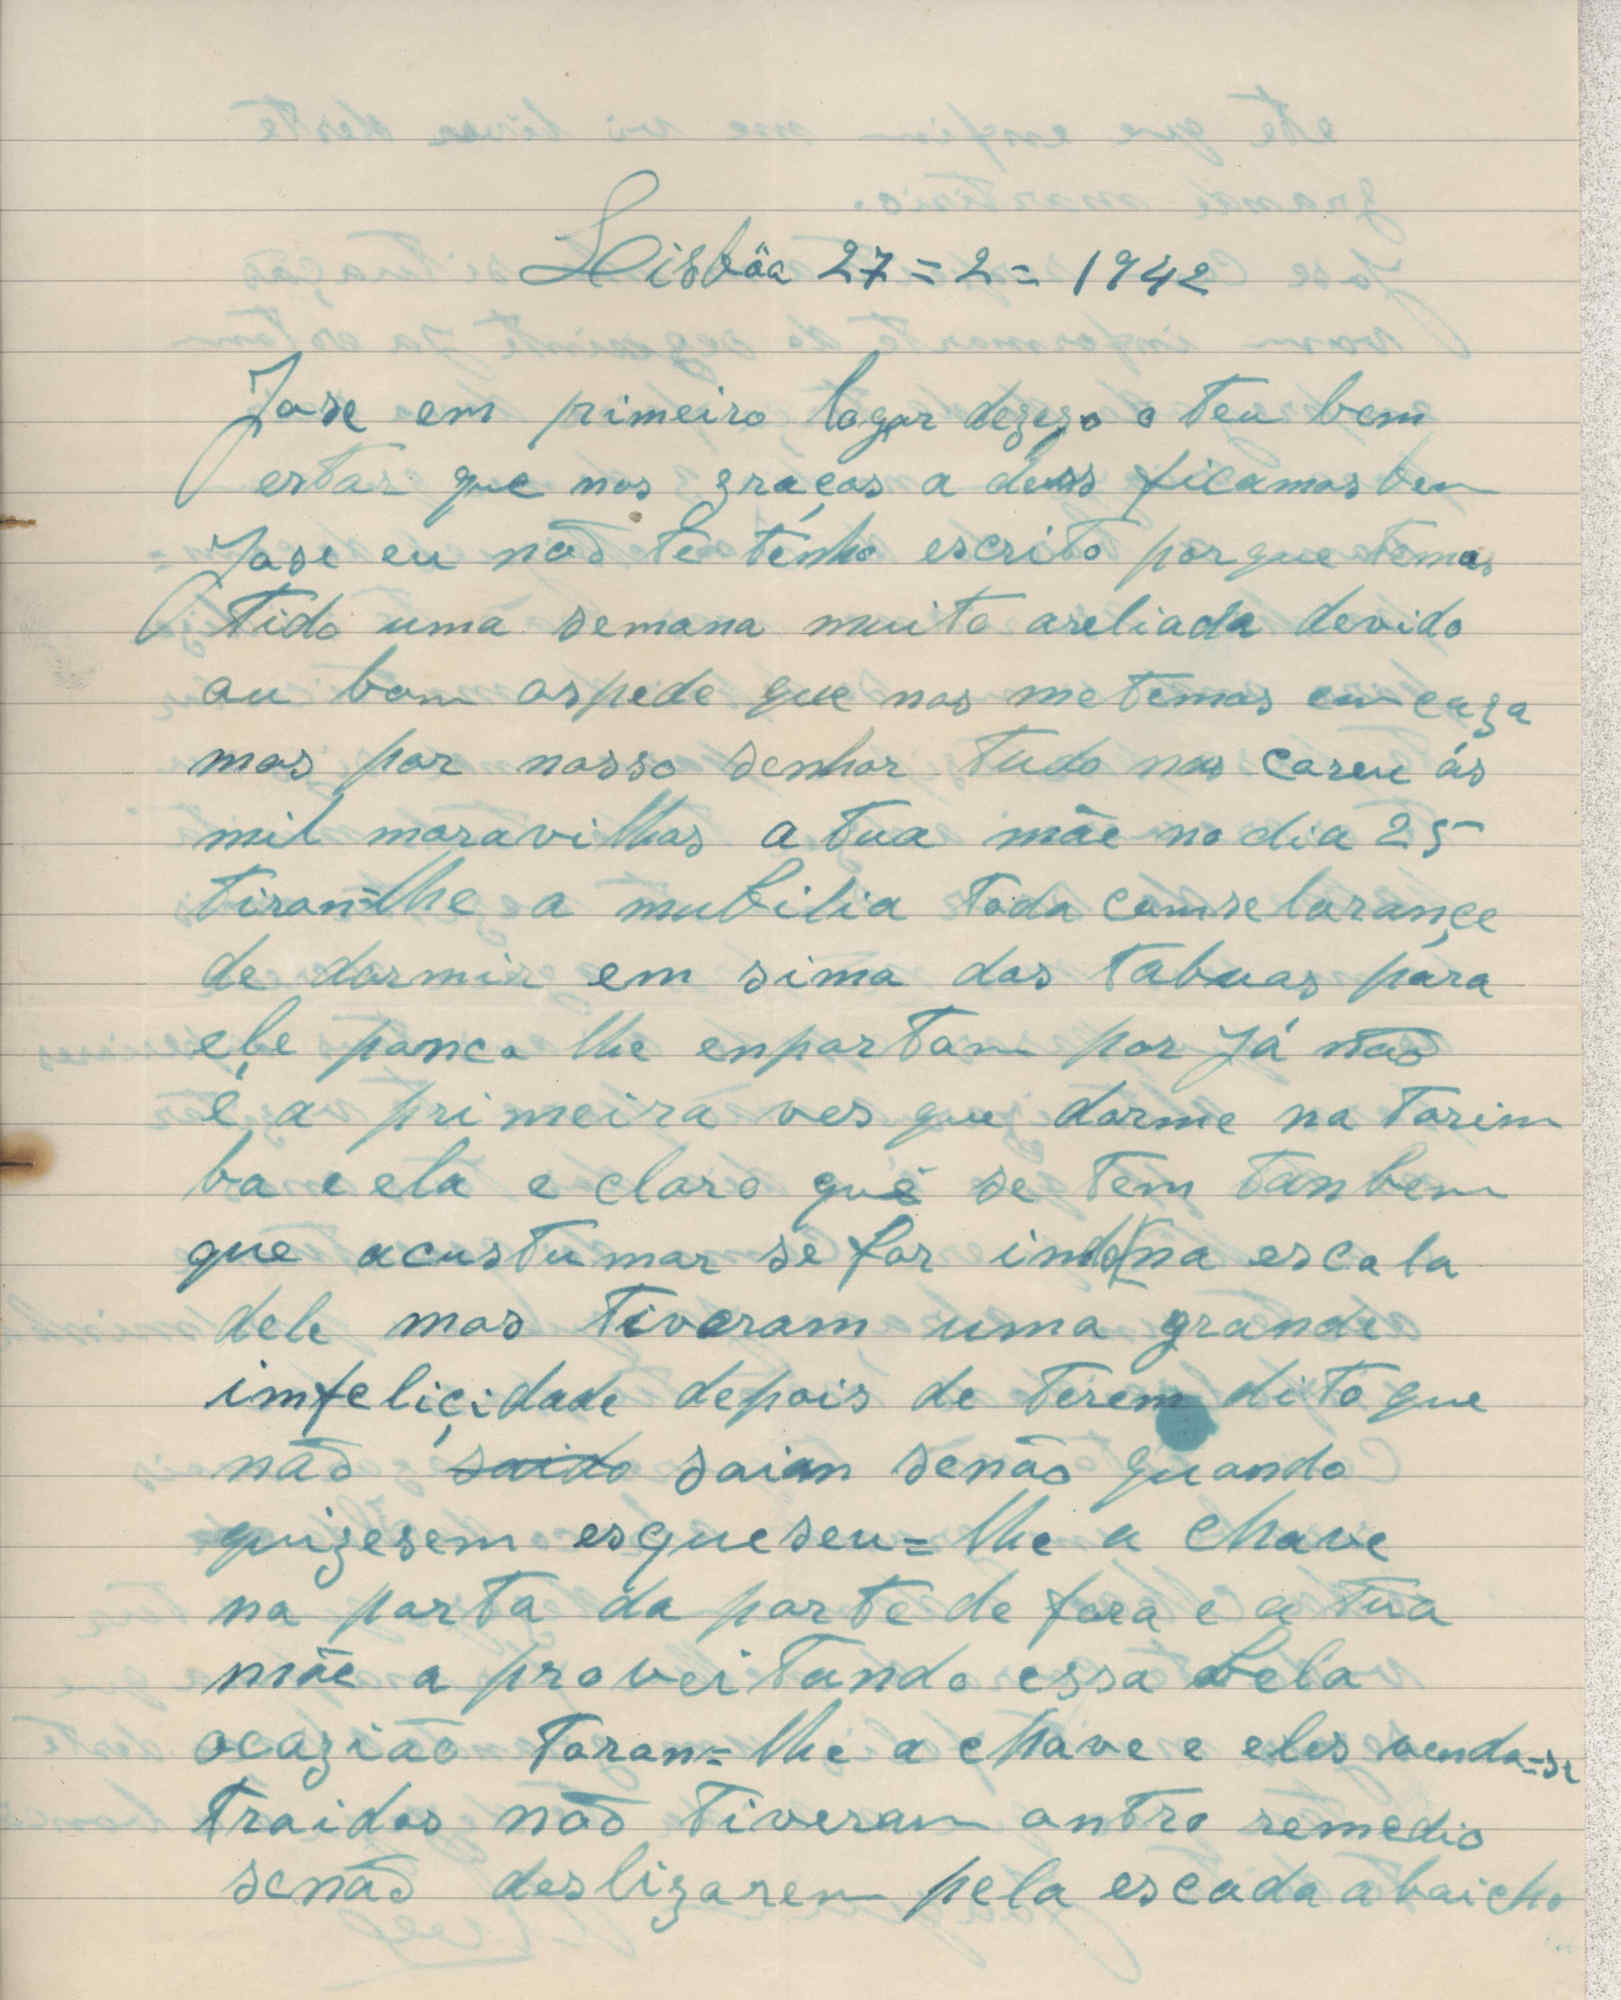 Lisbôa 27=2=1942
Jose em primeiro logar dezejo o teu bem
estar que nos graças a deus ficamos ben
Jose eu naõ te tenho escrito porque temos
tido uma semana muito areliada devido
au bom ospede que nos metemos em caza
mas por nosso senhor tudo nos coreu ás
mil maravilhas a tua mãe no dia 25
tiron=lhe a mubilia toda com
de dormir em sima das tabuas para
ele ponco lhe enportam por já naõ
é a primeira ves que dorme na torim
ba e ela e claro que se tem tanbem
que acustumar se for indo na escola
dele mas tiveram uma grande
imfeliçidade depois de terem dito que
não saido saian senão quando
quizesem esqueseu=lhe a chave
na porta da parte de fora e a tua
mãe a proveitando essa bela
ocazião toron=lhe a chave e eles vendo=se
traidos naõ tiveram ontro remedio
senaõ deslizarem pela escada abaicho